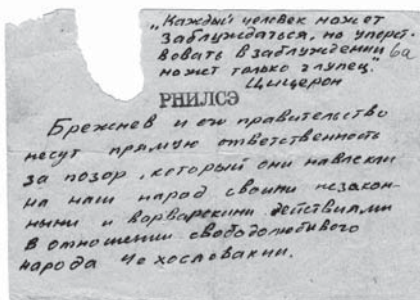 „Каждый человек может
заблуждаться, но упорст-
вовать в заблуждении
может только глупец."
Цицерон
6а
РНИЛСЭ
Брежнев и его правительство
несут прямую ответственность
за позор, который они навлекли
на наш народ своими незакон-
ными и варварскими действиями
в отношении свободолюбивого
народа Чехословакии.